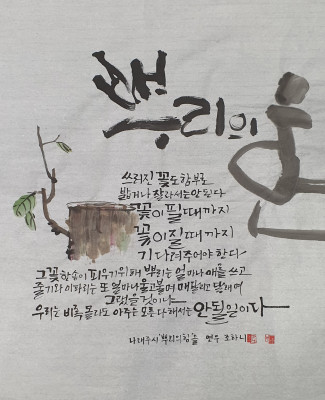 뿌리의 힘
쓰러진 꽃도 함부로
밟거나 잘라서는 안 된다
꽃이 필 때까지
꽃이 질 때까지
기다려주어야 한다
그 꽃 한 송이 피우기 위해 뿌리는 얼마나 애를 쓰고
줄기와 이파리는 또 얼마나 울고불며 매달리고 달래며
그랬을 것이냐
우리는 비록 몰라도 아주는 모른다 해서는 안 될 일이다
나태주 시 '뿌리의 힘'을 연우 조하니